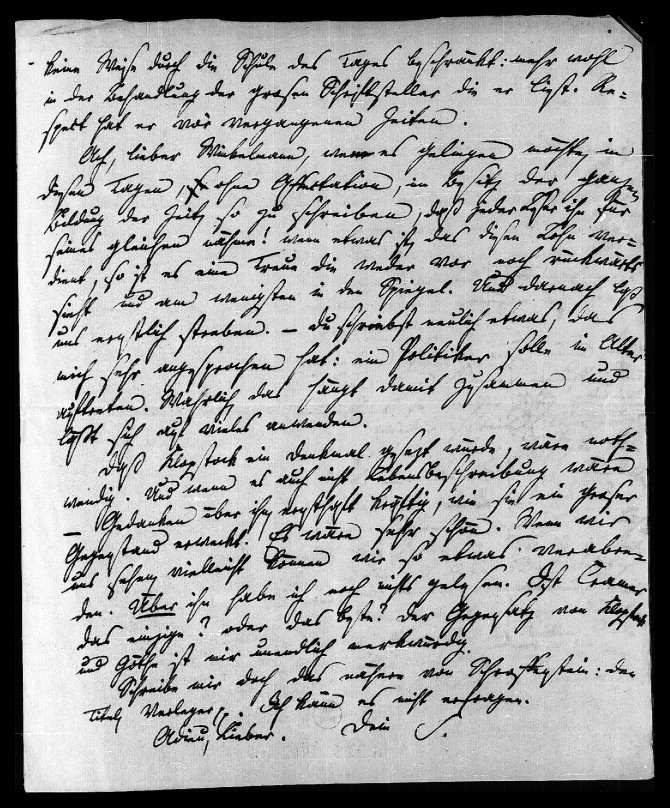 keine Weise durch die Schule des Tages beschränkt: mehr wohl
in der Behandlung der grosen Schriftsteller die er liest. Re=
spect hat er vor vergangenen Zeiten.
Ach, lieber Winkelmann, wenn es gelingen möchte, in
diesen Tagen, ohne Affectation, im Besitz der ganzen
Bildung der Zeit, so zu schreiben, daß jeder Leser ihn für
seines gleichen nähme! wenn etwas ist, das diesen Lohn ver=
dient, so ist es eine Treue die weder vor noch rückwärts
sieht und am wenigsten in den Spiegel. Und darnach laß
uns ernstlich streben. – Du schriebst neulich etwas, das
mich sehr angesprochen hat: ein Politiker solle im Alter
auftreten. Wahrlich das hängt damit zusammen und
läßt sich auf vieles anwenden.
Daß Klopstock ein Denkmal gesezt würde, wäre noth=
wendig. Und wenn es auch nicht Lebensbeschreibung wäre
– Gedanken über ihn ernsthaft kräftig, wie sie ein groser
Gegenstand erweckt. Es wäre sehr schön. Wenn wir
uns sehen, vielleicht können wir so etwas verabre=
den. Über ihn habe ich noch nichts gelesen. Ist Cramer
das einzige? oder das beste? Der Gegensatz von Klopstock
und Göthe ist mir unendlich merkwürdig.
Schreibe mir doch das nähere von : den
Titel, Verleger,. Ich kann es nicht erfragen.
Adieu, Lieber. Dein S.